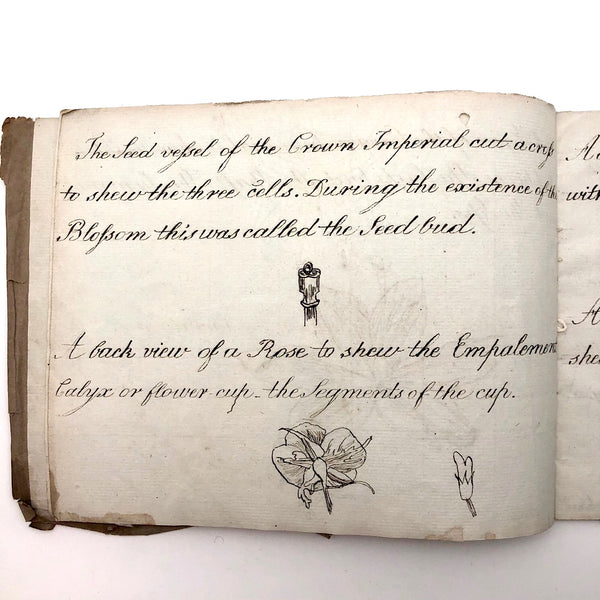 The Seed veſsel of the Crown Imperial cut a croſs
to shew the three cells. During the existence of the
Bloſsom this was called the Seed bud.
A back view of a Rose to shew the Empalement
Calyx or flower cup - the Segments of the cup.
with